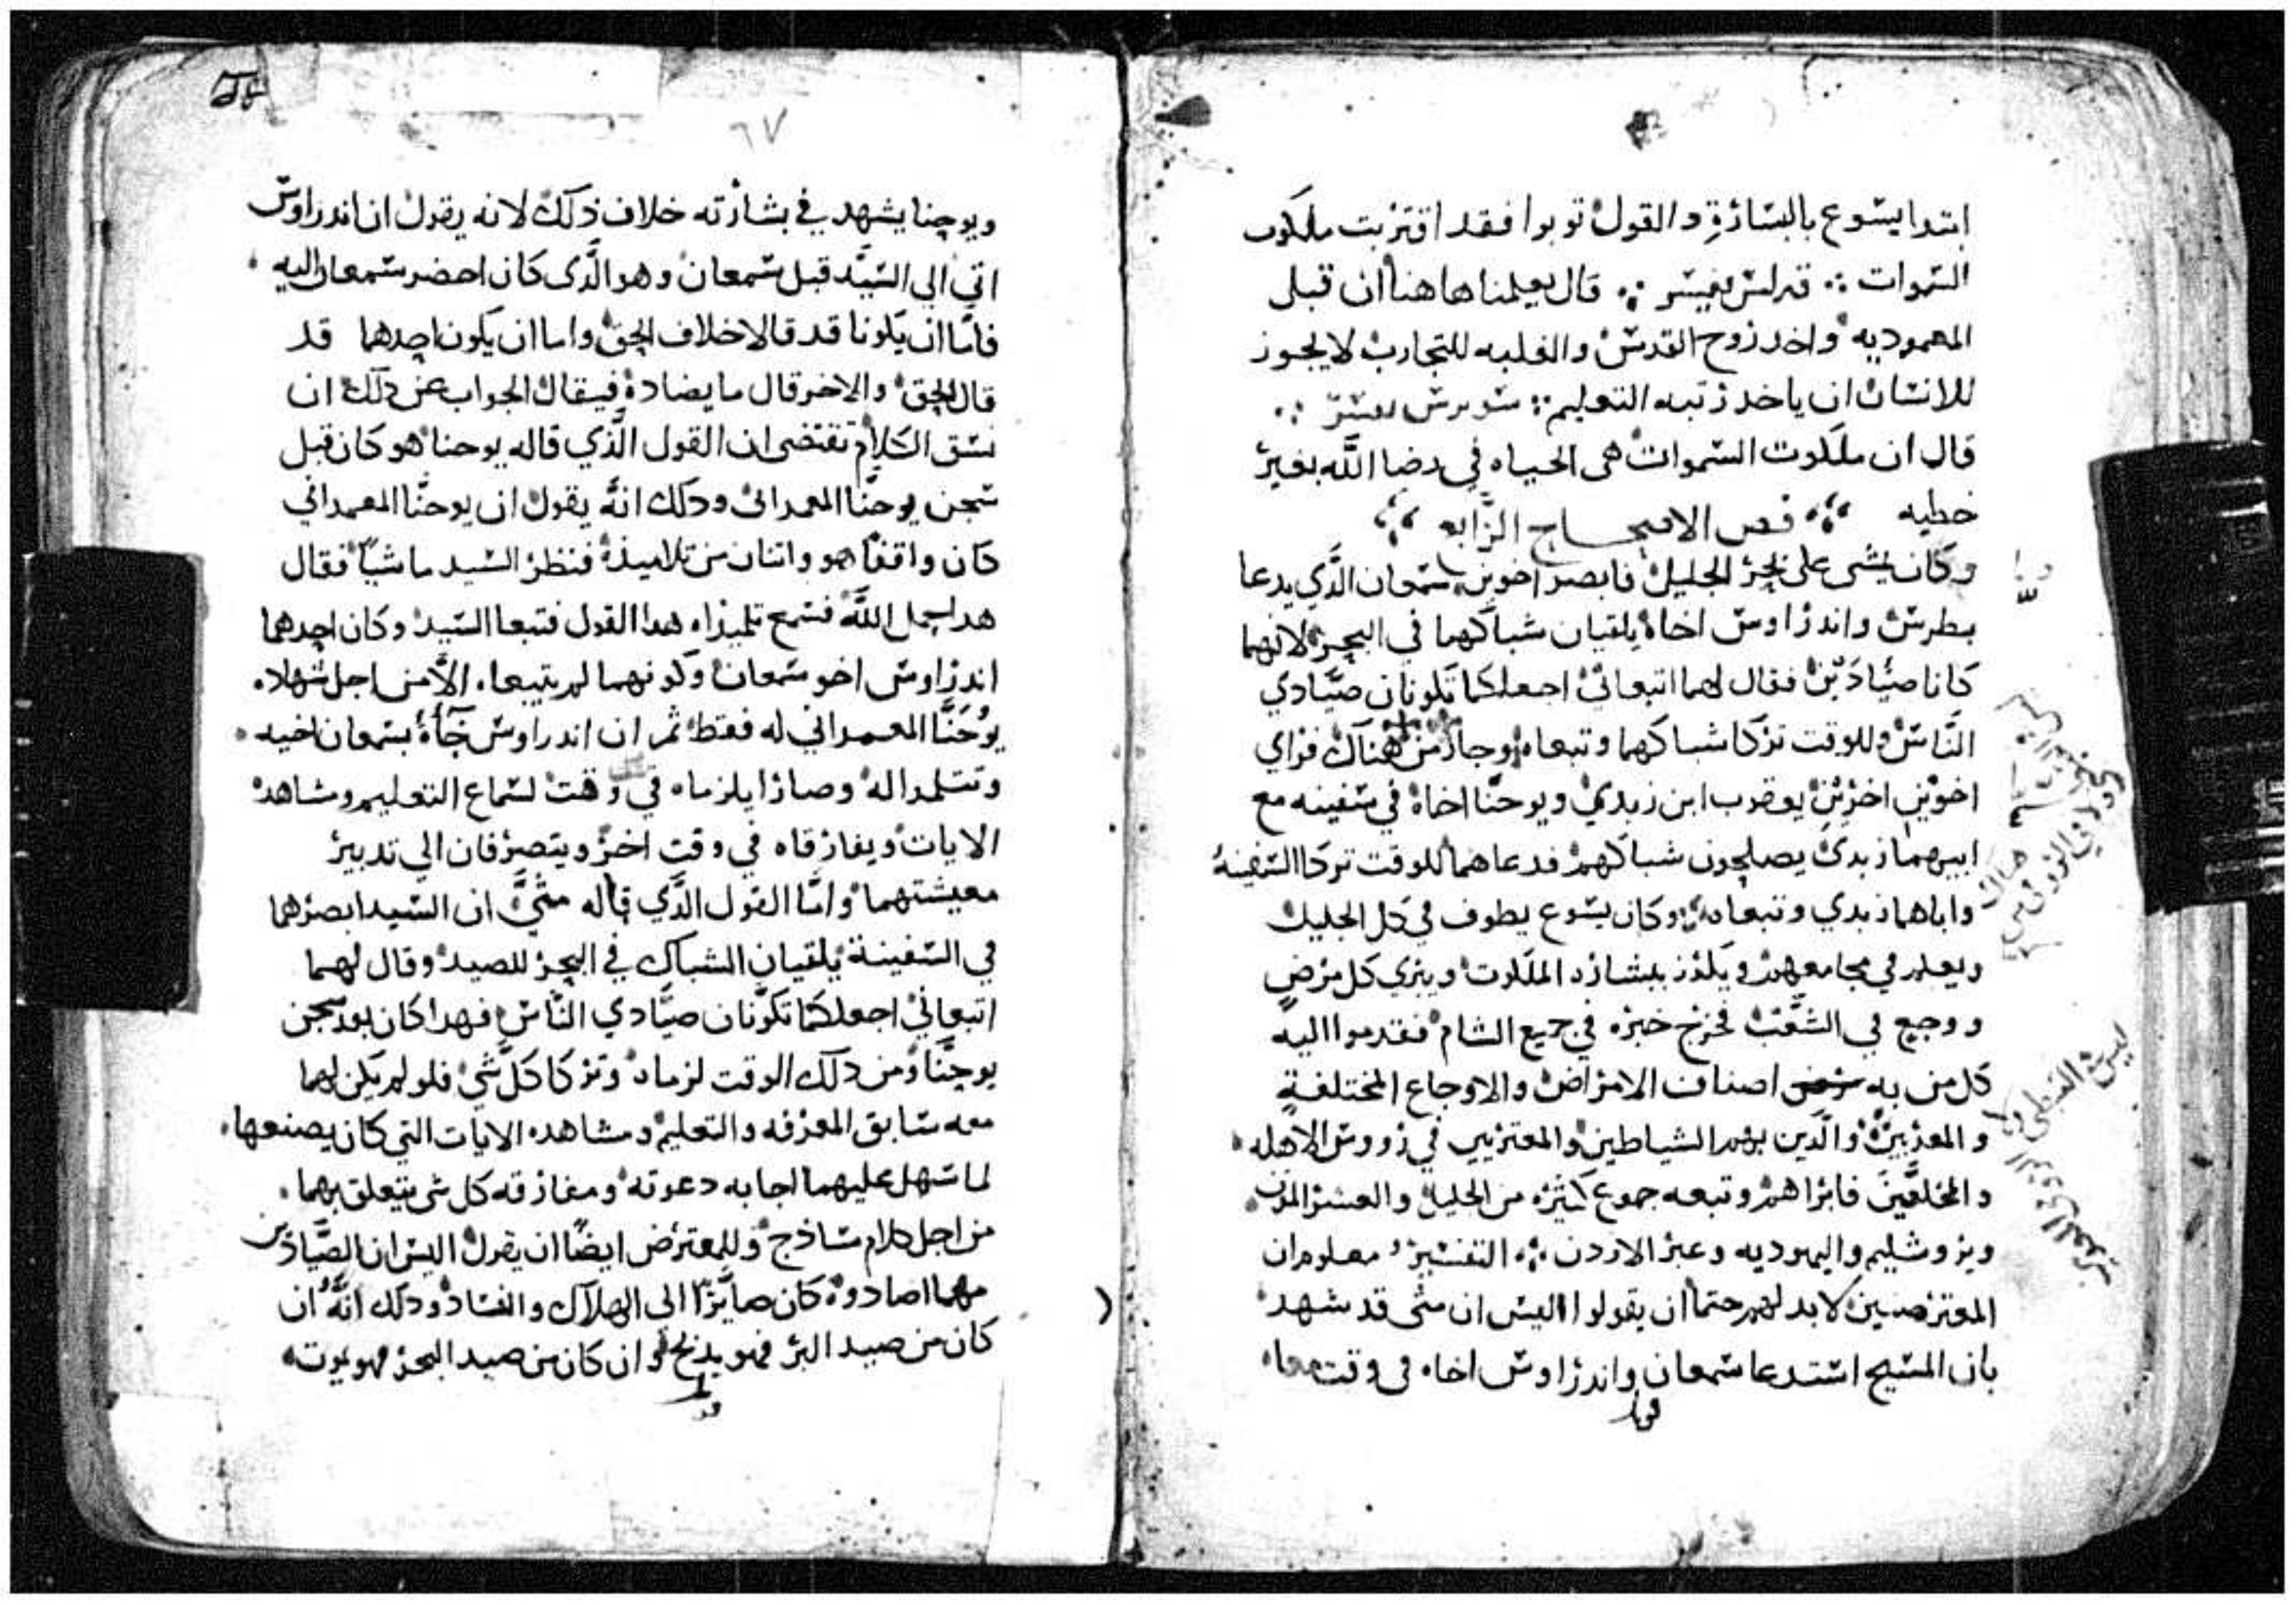 ابتدا يسوع بالبشارة والقول توبوا فقد اقتربت ملكوت
السموات ჻ قال يعلمنا هاهنا ان قبل
المعمودية واخد روح القدس والغلبه للتجارب لا يجوز
للانسان ان ياخد رتبه التعليم ჻
قال ان ملكوت السموات هى الحياه في رضا الله بغير
خطيه ჻ فص الاصحاح الرابع ჻
وكان يمشى على بحر الجليل فابصر اخوين سمعان الذي يدعا
بطرس واندراوس اخاه يلقيان شباكهما في البحر لانهما
كانا صيادين فقال لهما اتبعاني اجعلكما تكونان صيادي
الناس وللوقت تركا شباكهما وتبعاه وجاز من هناك فراي
اخوين اخرين يعقوب ابن زبدي ويوحنا اخاه في سفينه مع
ابيهما زبدي يصلحون شباكهم فدعاهما للوقت تركا السفينة
واباهما زبدي وتبعاه ჻ وكان يسوع يطوف في كل الجليل
ويعلم في مجامعهم ويكرز ببشارة الملكوت ويبري كل مرض
ووجع في الشعب فخرج خبره في جميع الشام فقدموا اليه
كل من به مرض اصناف الامراض والاوجاع المختلفة
والمعذبين والذين بهم الشياطين والمعتريين في رووس الاهله
والمخلعين فابراهم وتبعه جموع كثيره من الجليل والعشر المدن
ويروشليم واليهوديه وعبر الاردن ჻ التفسير معلوم ان
المعترضين لا بد لهم حتما ان يقولوا اليس ان متى قد شهد
بان المسيح استدعا سمعان واندراوس اخاه في وقت معا
٦٧
ويوحنا يشهد في بشارته خلاف ذلك لانه يقول ان اندراوس
اتي الي السيد قبل سمعان وهو الذى كان احضر سمعان اليه
فاما ان يكونا قد قالا خلاف الحق واما ان يكون احدهما قد
قال الحق والاخر قال ما يضاده فيقال الجواب عن دلك ان
نسق الكلام تقتضى ان القول الذي قاله يوحنا هو كان قبل
سجن يوحنا المعمدانى ودلك انه يقول ان يوحنا المعمداني
كان واقفا هو واتنان من تلاميذه فنظر السيد ماشيا فقال
هدا حمل الله فسمع تلميذاه هدا القول فتبعا السيد وكان احدهما
اندراوس اخو سمعان وكونهما لم يتبعاه الا من اجل شهاده
يوحنا المعمداني له فقط ثم ان اندراوس جاة بسمعان اخيه
وتتلمدا له وصارا يلزماه في وقت لسماع التعليم ومشاهده
الايات ويفارقاه في وقت اخر ويتصرفان الي تدبير
معيشتهما واما القول الذي قاله متى ان السيد ابصرهما
في السفينة يلقيان الشباك في البحر للصيد وقال لهما
اتبعاني اجعلكما تكونان صيادي الناس فهدا كان بعد سجن
يوحنا ومن دلك الوقت لزماه وتركا كل شي فلو لم يكن لهما
معه سابق المعرفه والتعليم ومشاهده الايات التي كان يصنعها
لما سهل عليهما اجابه دعوته ومفارقه كل شى يتعلق بهما
من اجل كلام ساذج وللمعترض ايضا ان يقول اليس ان الصيادين
مهما اصادوه كان صايرا الى الهلاك والفساد ودلك انه ان
كان من صيد البر فهو يدبح وان كان من صيد البحر فهو يموت